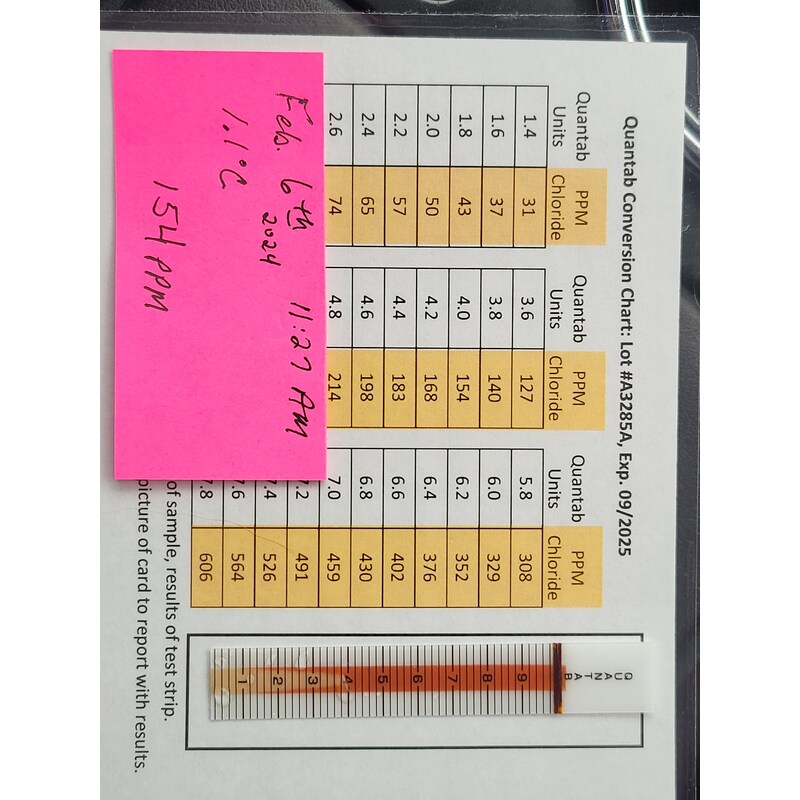 Quantab Conversion Chart: Lot #A3285A, Exp. 09/2025
Quantab Units PPM Chloride
1.4 31
1.6 37
1.8 43
2.0 50
2.2 57
2.4 65
2.6 74
Quantab Units PPM Chloride
3.6 127
3.8 140
4.0 154
4.2 168
4.4 183
4.6 198
4.8 214
Quantab Units PPM Chloride
5.8 308
6.0 329
6.2 352
6.4 376
6.6 402
6.8 430
7.0 459
.2 491
.4 526
.6 564
.8 606
of sample, results of test strip.
picture of card to report with results.
Feb. 6th 11:27 AM
2024
1.1°C
154 PPM
QUANTAB
9
8
7
6
5
4
3
2
1